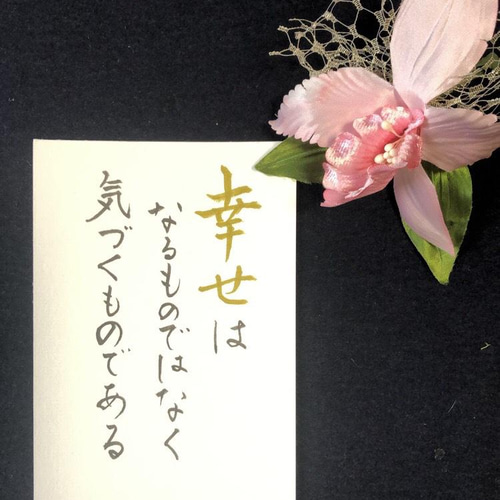 幸せは
なるものではなく
気づくものである